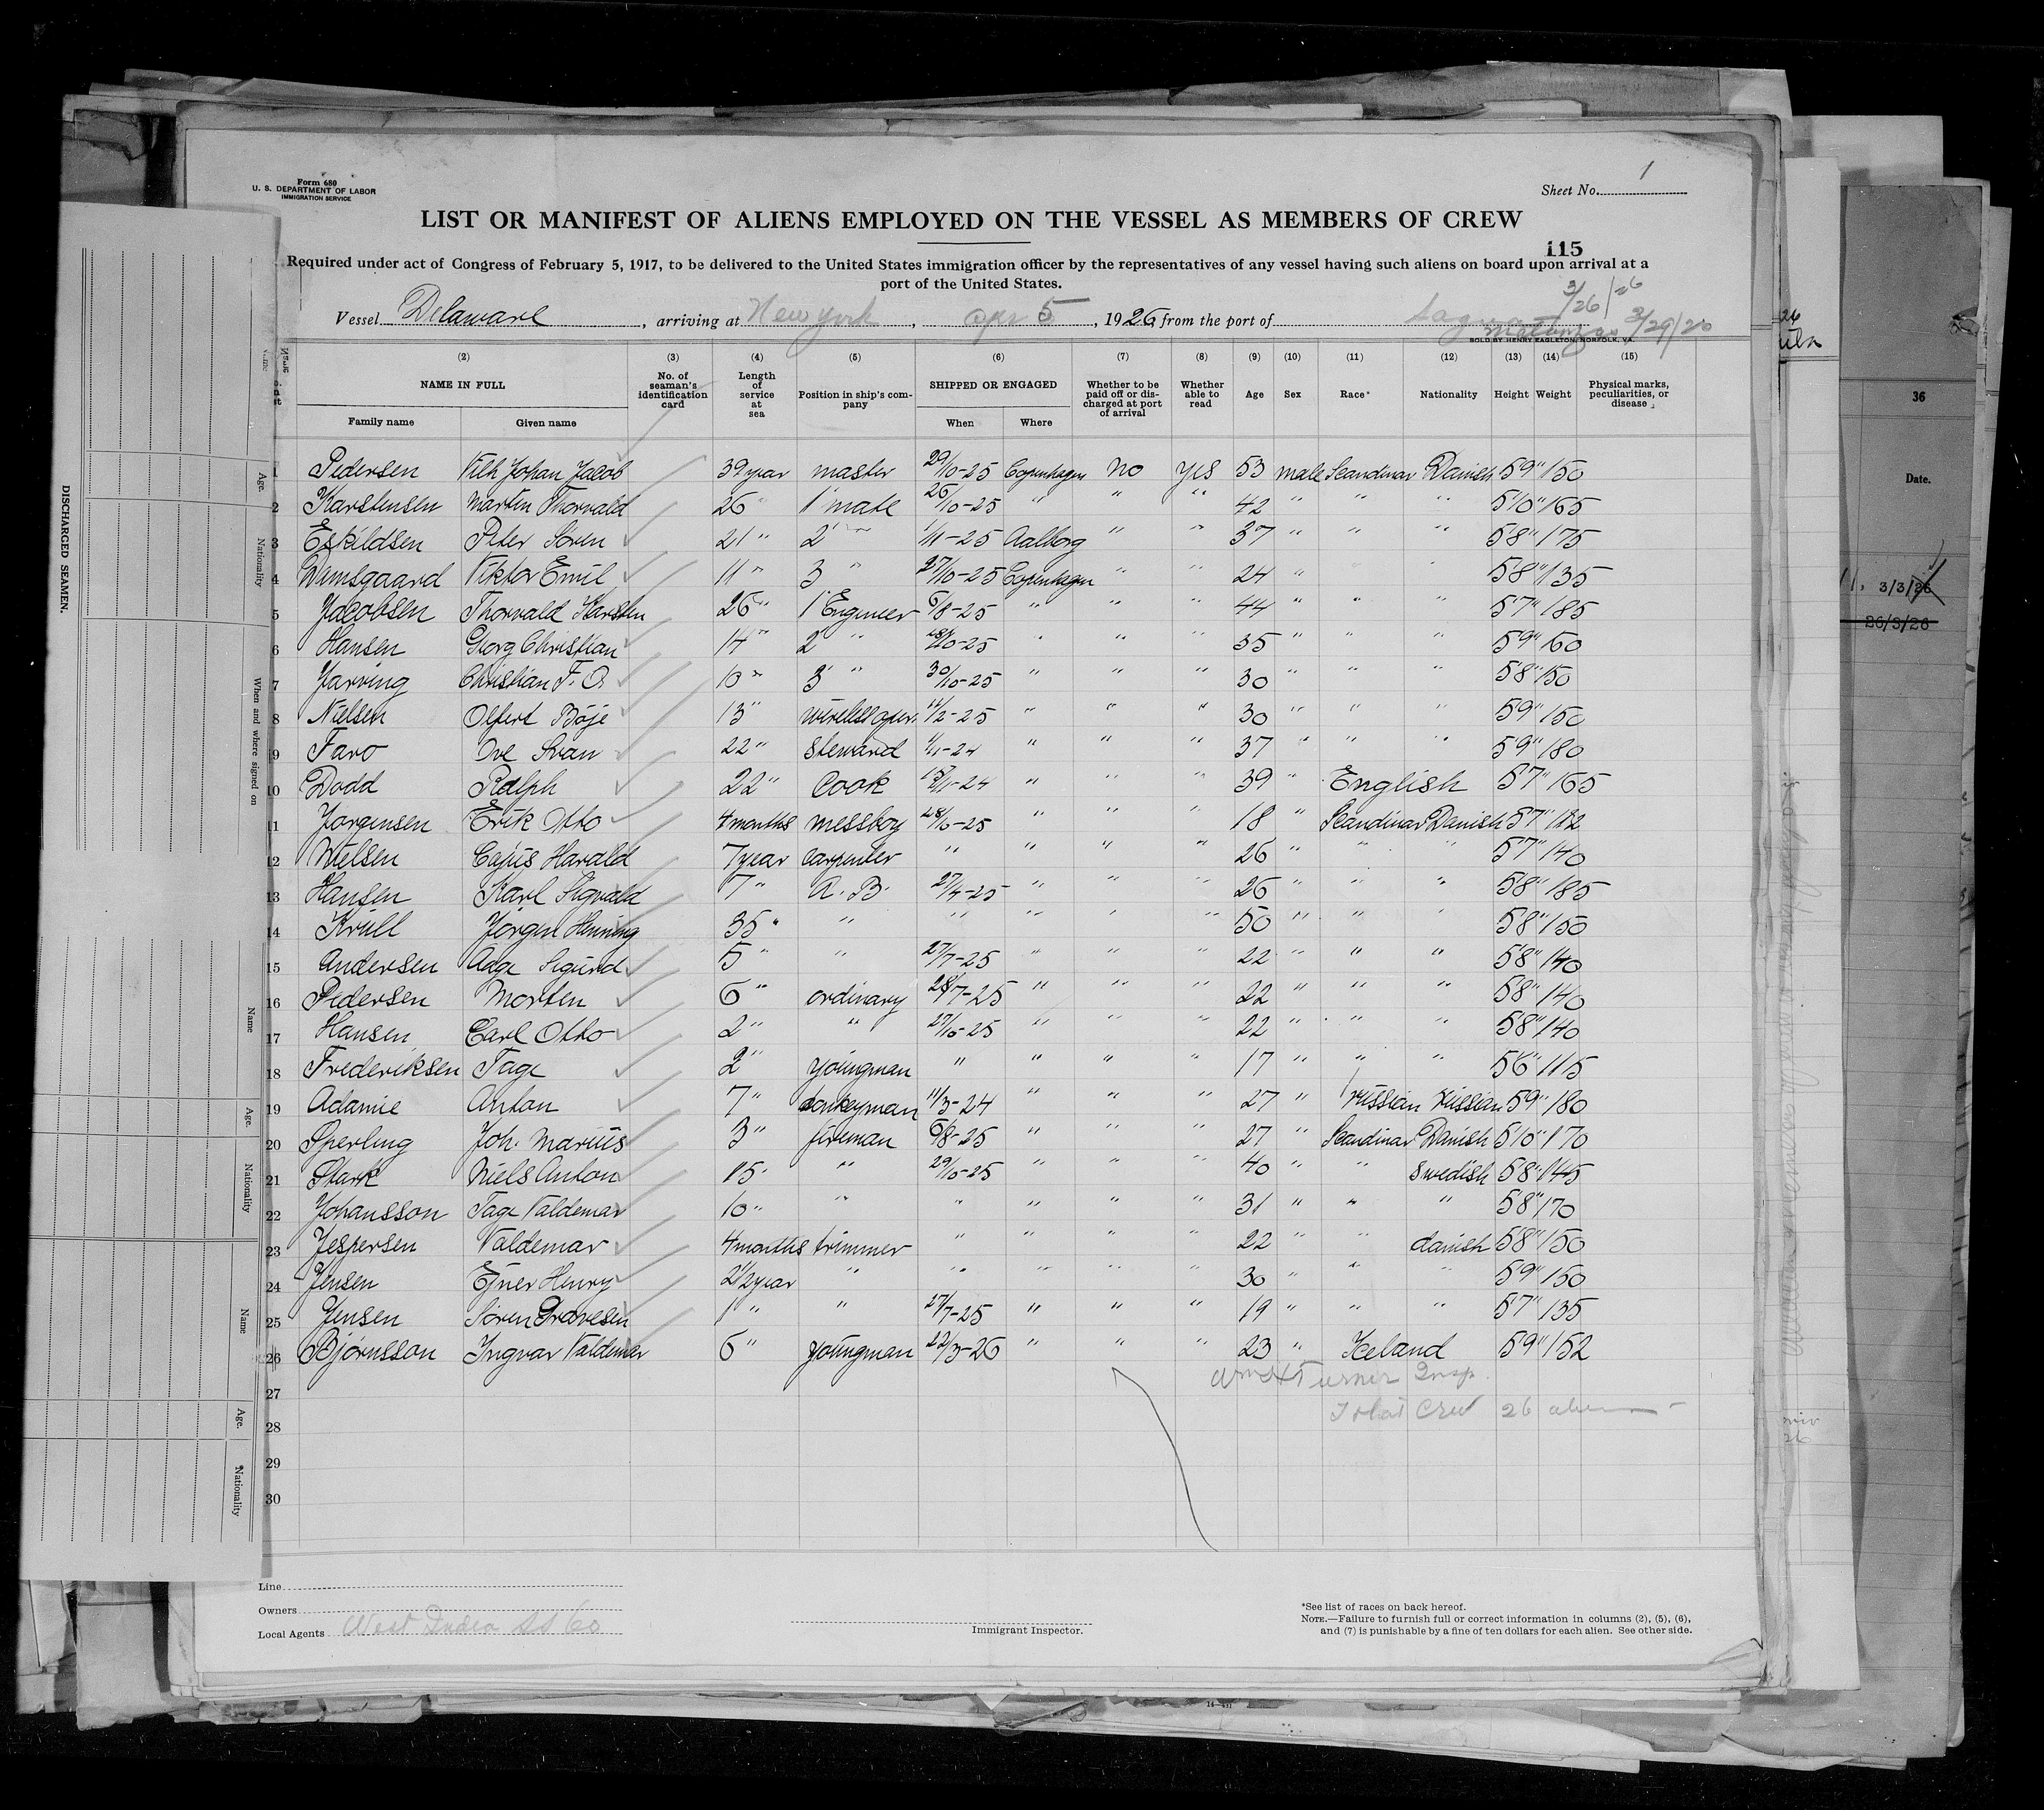 Form 680
U. S. DEPARTMENT OF LABOR
IMMIGRATION SERVICE
Sheet No. 1
LIST OR MANIFEST OF ALIENS EMPLOYED ON THE VESSEL AS MEMBERS OF CREW
115
Required under act of Congress of February 5, 1917, to be delivered to the United States immigration officer by the representatives of any vessel having such aliens on board upon arrival at a
port of the United States.
3/26/26
Vessel Delaware, arriving at New York, Apr 5, 1926 from the port of Sagua
Matanzas 3/29/26
SOLD BY HENRY EAGLETON, NORFOLK, VA.
(2) (3) (4) (5) (6) (7) (8) (9) (10) (11) (12) (13) (14) (15)
NAME IN FULL
Family name Given name
No. of seaman's identification card
Length of service at sea
Position in ship's company
SHIPPED OR ENGAGED
When Where
Whether to be paid off or discharged at port of arrival
Whether able to read
Age Sex Race* Nationality Height Weight
Physical marks, peculiarities, or disease
1 Pedersen Vilh Johan Jacob 39 year master 29/10-25 Copenhagen No yes 53 male Scandinav Danish 5'9" 150
2 Karstensen Martin Thorvald 26 " 1' mate 26/10-25 " " " 42 " " " 5'10" 165
3 Eskildsen Peter Soren 21 " 2' " 1/11-25 Aalborg " " 37 " " " 5'8" 175
4 Damsgaard Viktor Emil 11 " 3 " 27/10-25 Copenhagen " " 24 " " " 5'8" 135
5 Jacobsen Thorvald Karsten 26 " 1' Engineer 6/8-25 " " " 44 " " " 5'7" 185
6 Hansen Georg Christian 14 " 2' " 28/10-25 " " " 35 " " " 5'9" 160
7 Jarving Christian F. O. 10 " 3' " 30/10-25 " " " 30 " " " 5'8" 150
8 Nielsen Olfert Böje 13 " wireless oper. 11/2-25 " " " 30 " " " 5'9" 150
9 Faro Ove Svan 22 " steward 1/11-24 " " " 37 " " " 5'9" 180
10 Dodd Ralph 22 " Cook 15/11-24 " " " 39 " English 5'7" 165
11 Jorgensen Erik Otto 4 months messboy 28/10-25 " " " 18 " Scandinav Danish 5'7" 122
12 Nielsen Cajus Harald 7 year carpenter " " " " 26 " " " 5'7" 140
13 Hansen Karl Sigvald 7 " A. B. 27/4-25 " " " 26 " " " 5'8" 185
14 Krüll Jörgen Henning 35 " " " " " " 50 " " " 5'8" 150
15 Andersen Aage Sigurd 5 " " 27/7-25 " " " 22 " " " 5'8" 140
16 Pedersen Morten 6 " ordinary 28/7-25 " " " 22 " " " 5'8" 140
17 Hansen Carl Otto 2 " " 27/10-25 " " " 22 " " " 5'8" 140
18 Frederiksen Tage 2 " youngman " " " " 17 " " " 5'6" 115
19 Adamie Anton 7 " donkeyman 11/3-24 " " " 27 " Russian Russian 5'9" 180
20 Sperling Joh. Marius 3 " fireman 6/8-25 " " " 27 " Scandinav Danish 5'10" 170
21 Stark Niels Anton 15 " " 29/10-25 " " " 40 " " Swedish 5'8" 145
22 Johansson Tage Valdemar 10 " " " " " " 31 " " " 5'8" 170
23 Jespersen Valdemar 4 months trimmer " " " " 22 " " danish 5'8" 150
24 Jensen Ejner Henry 2 1/2 year " " " " " 30 " " " 5'9" 150
25 Jensen Soren Gravesen 1 " " 27/7-25 " " " 19 " " " 5'7" 135
26 Björnsson Ingvar Valdemar 6 " youngman 22/3-26 " " " 23 " Iceland 5'9" 152
27 Wm H Turner Insp.
28 Total Crew 26 aliens
29
30
Line
Owners
Local Agents West India SS Co
Immigrant Inspector.
*See list of races on back hereof.
NOTE.—Failure to furnish full or correct information in columns (2), (5), (6),
and (7) is punishable by a fine of ten dollars for each alien. See other side.
14—431
DISCHARGED SEAMEN.
Name
Age.
Nationality
When and where signed on
Name
Age.
Nationality
Name
Age.
Nationality
36
Date.
3/3/26
26/3/26